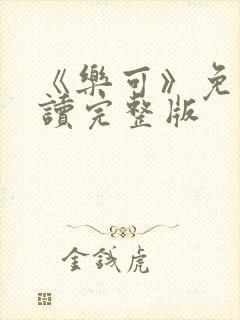 《樂可》免
讀完整版
金錢虎